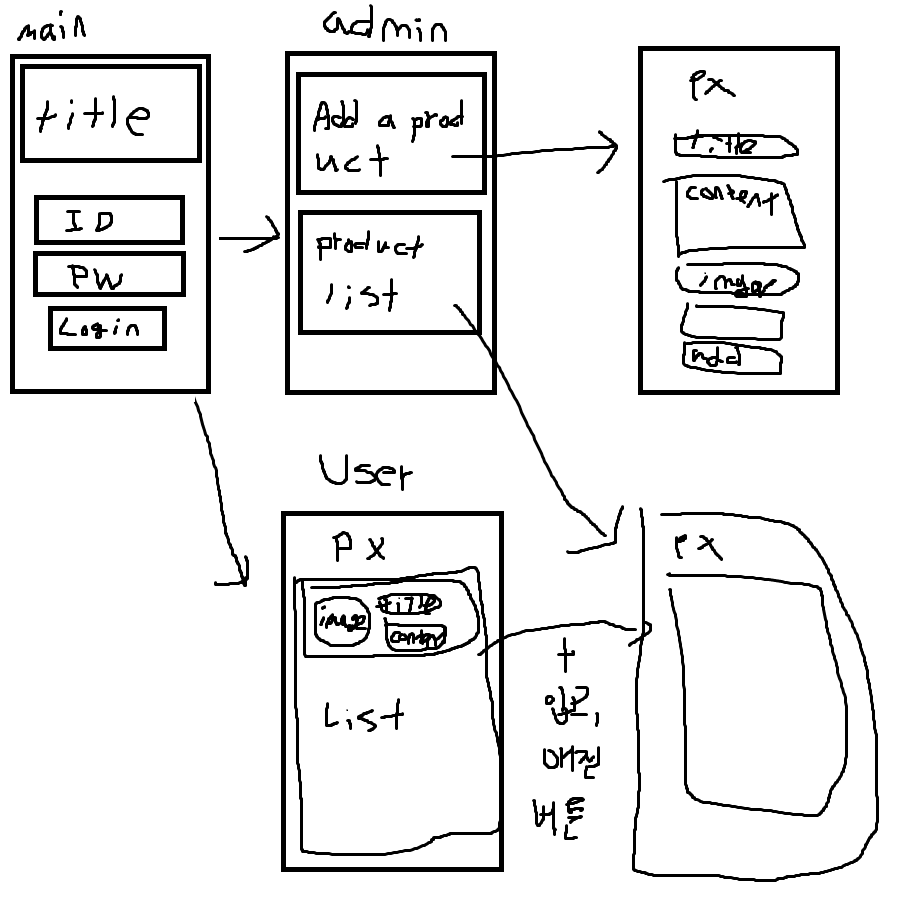 main
title
ID
PW
Login
admin
Add a prod
uct
product
list
PX
title
content
add
User
PX
image
title
List
+
입고,
매진
버튼
PX